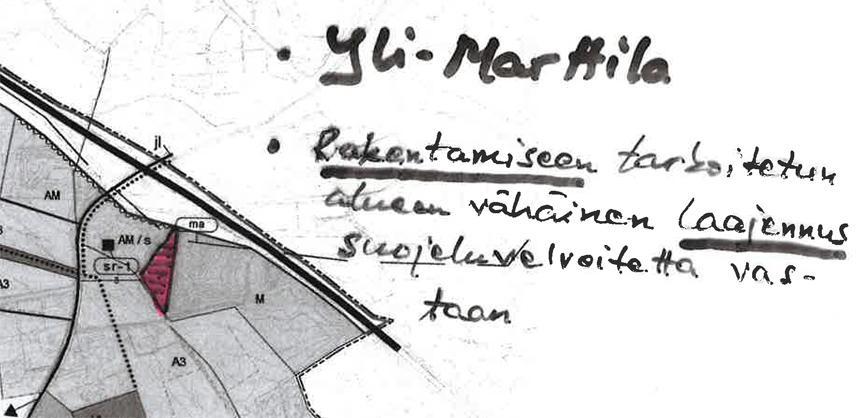 • Yli-Marttila
• Rakentamiseen tarkoitetun
alueen vähäinen laajennus
suojeluvelvoitetta vas-
taan
jl
AM
ma
AM/s
sr-1
A3
M
A3